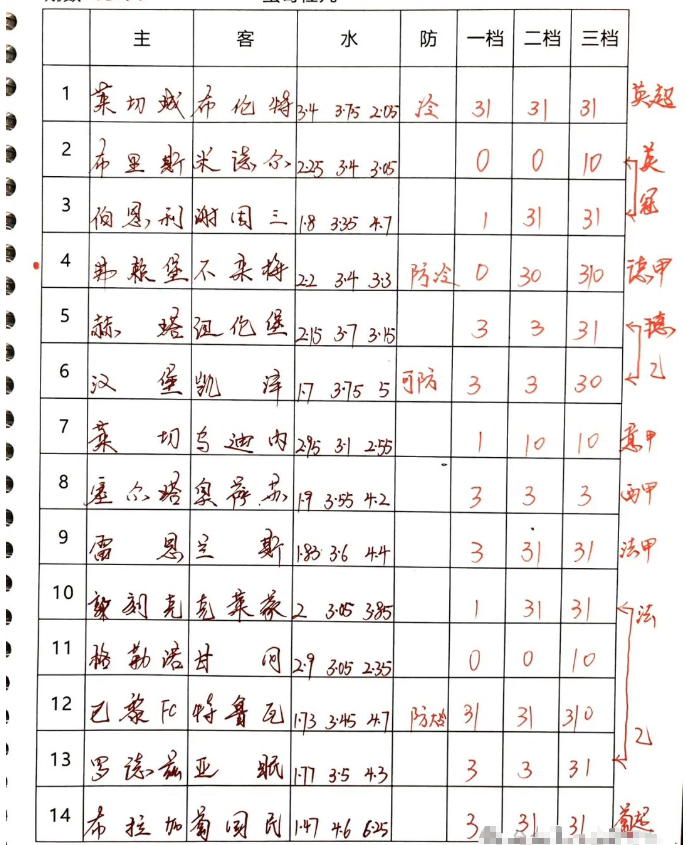 主 客 水 防 一档 二档 三档
1 莱切城 布伦特 3.4 3.75 2.05 冷 31 31 31 英超
2 布里斯 米德尔 2.25 3.4 3.05 0 0 10 英冠
3 伯恩利 谢周三 1.8 3.35 4.7 1 31 31
4 弗赖堡 不来梅 2.2 3.4 3.3 防冷 0 30 310 德甲
5 赫塔 纽伦堡 2.15 3.7 3.15 3 3 31 德乙
6 汉堡 凯泽 1.7 3.75 5 可防 3 3 30
7 莱切 乌迪内 2.95 3.1 2.55 1 10 10 意甲
8 塞尔塔 奥萨苏 1.9 3.55 4.2 3 3 3 西甲
9 雷恩 兰斯 1.83 3.6 4.4 3 31 31 法甲
10 敦刻克 克莱蒙 2 3.05 3.85 1 31 31 法乙
11 格勒诺 甘冈 2.9 3.05 2.35 0 0 10
12 巴黎FC 特鲁瓦 1.73 3.45 4.7 防 31 31 310
13 罗德兹 亚眠 1.77 3.5 4.3 3 3 31
14 布拉加 葡国民 1.47 4.6 6.25 3 31 31 葡超